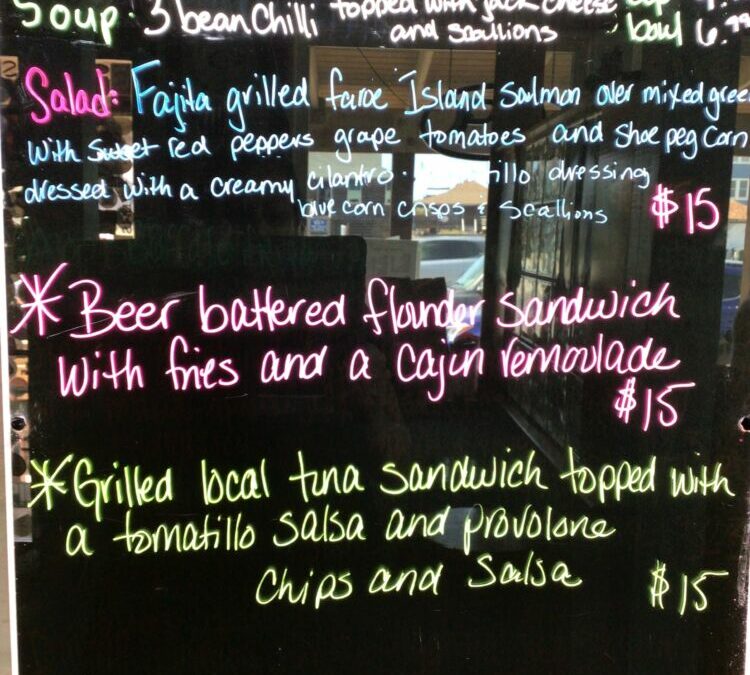 Soup · 3 bean Chilli topped with jack cheese cup
and scallions bowl 6.99
Salad: Fajita grilled faroe Island Salmon over mixed gree
With sweet red peppers grape tomatoes and shoe peg corn
dressed with a creamy cilantro · tillo dressing
blue corn crisps & scallions $15
* Beer battered flounder sandwich
with fries and a cajun remoulade
$15
* Grilled local tuna sandwich topped with
a tomatillo salsa and provolone
chips and salsa $15